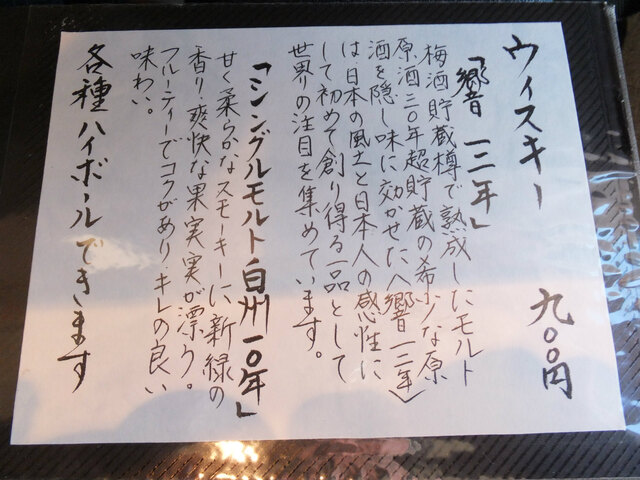 ウィスキー 九〇〇円
「響 一二年」
梅酒貯蔵樽で熟成したモルト
原酒三〇年超貯蔵の希少な原
酒を隠し味に効かせた〈響一二年〉
は日本の風土と日本人の感性に
して初めて創り得る一品として
世界の注目を集めています。
「シングルモルト白州一〇年」
甘く柔らかなスモーキーに新緑の
香り爽快な果実実が漂う。
フルーティーでコクがあり・キレの良い
味わい。
各種ハイボールできます